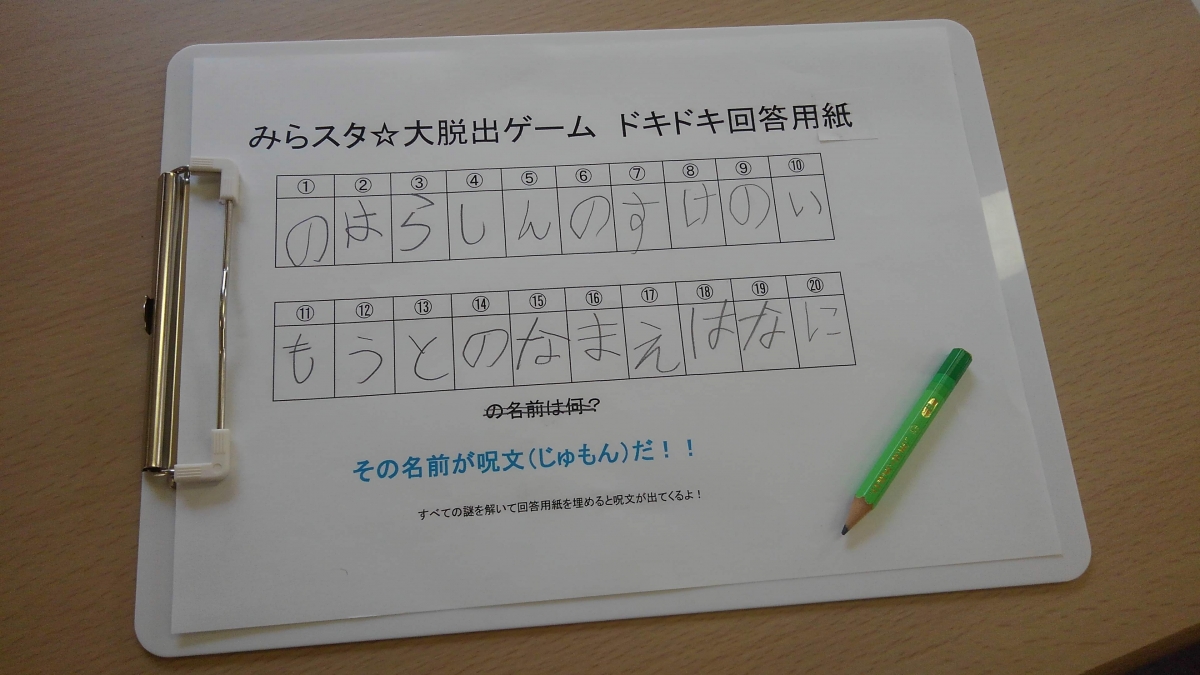 みらスタ☆大脱出ゲーム ドキドキ回答用紙
① ② ③ ④ ⑤ ⑥ ⑦ ⑧ ⑨ ⑩
のはらしんのすけのい
⑪ ⑫ ⑬ ⑭ ⑮ ⑯ ⑰ ⑱ ⑲ ⑳
もうとのなまえはなに
の名前は何？
その名前が呪文(じゅもん)だ！！
すべての謎を解いて回答用紙を埋めると呪文が出てくるよ！